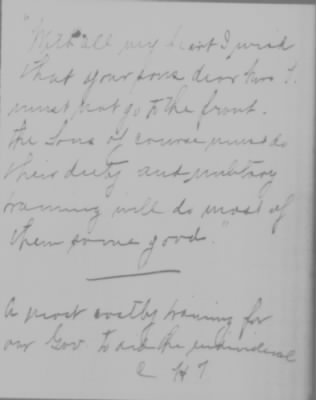 "With all my heart I wish
that your sons dear Mrs T.
must not go to the front.
The sons of course must do
their duty and military
training will do most of
them some good."
A most costly training for
our Gov. to aid the individual
C H T